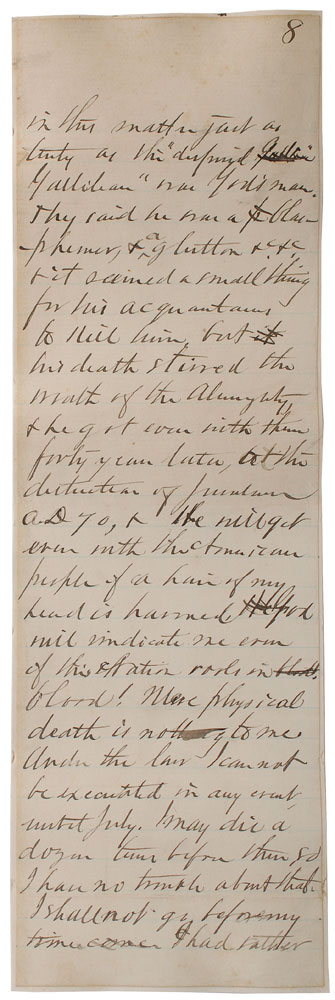 8
in this matter just as
truly as the "despised
Gallilean" was God's man.
They said he was a blas-
phemer, & a glutton &c. &c.
& it seemed a small thing
for his acquantancs
to kill him, but
his death stirred the
wrath of the Almighty,
& he got even with them
forty years later, at the
distruction of Jerusalem
A.D 70, & He will get
even with the American
people if a hair of my
head is harmed God
will vindicate me even
if the nation rools in
blood! Mere physical
death is nothing to me
Under the law I can not
be executed in any event,
until July. I may die a
dozen times before then, so
I have no trouble about that.
I shall not go before my
time comes I had rather